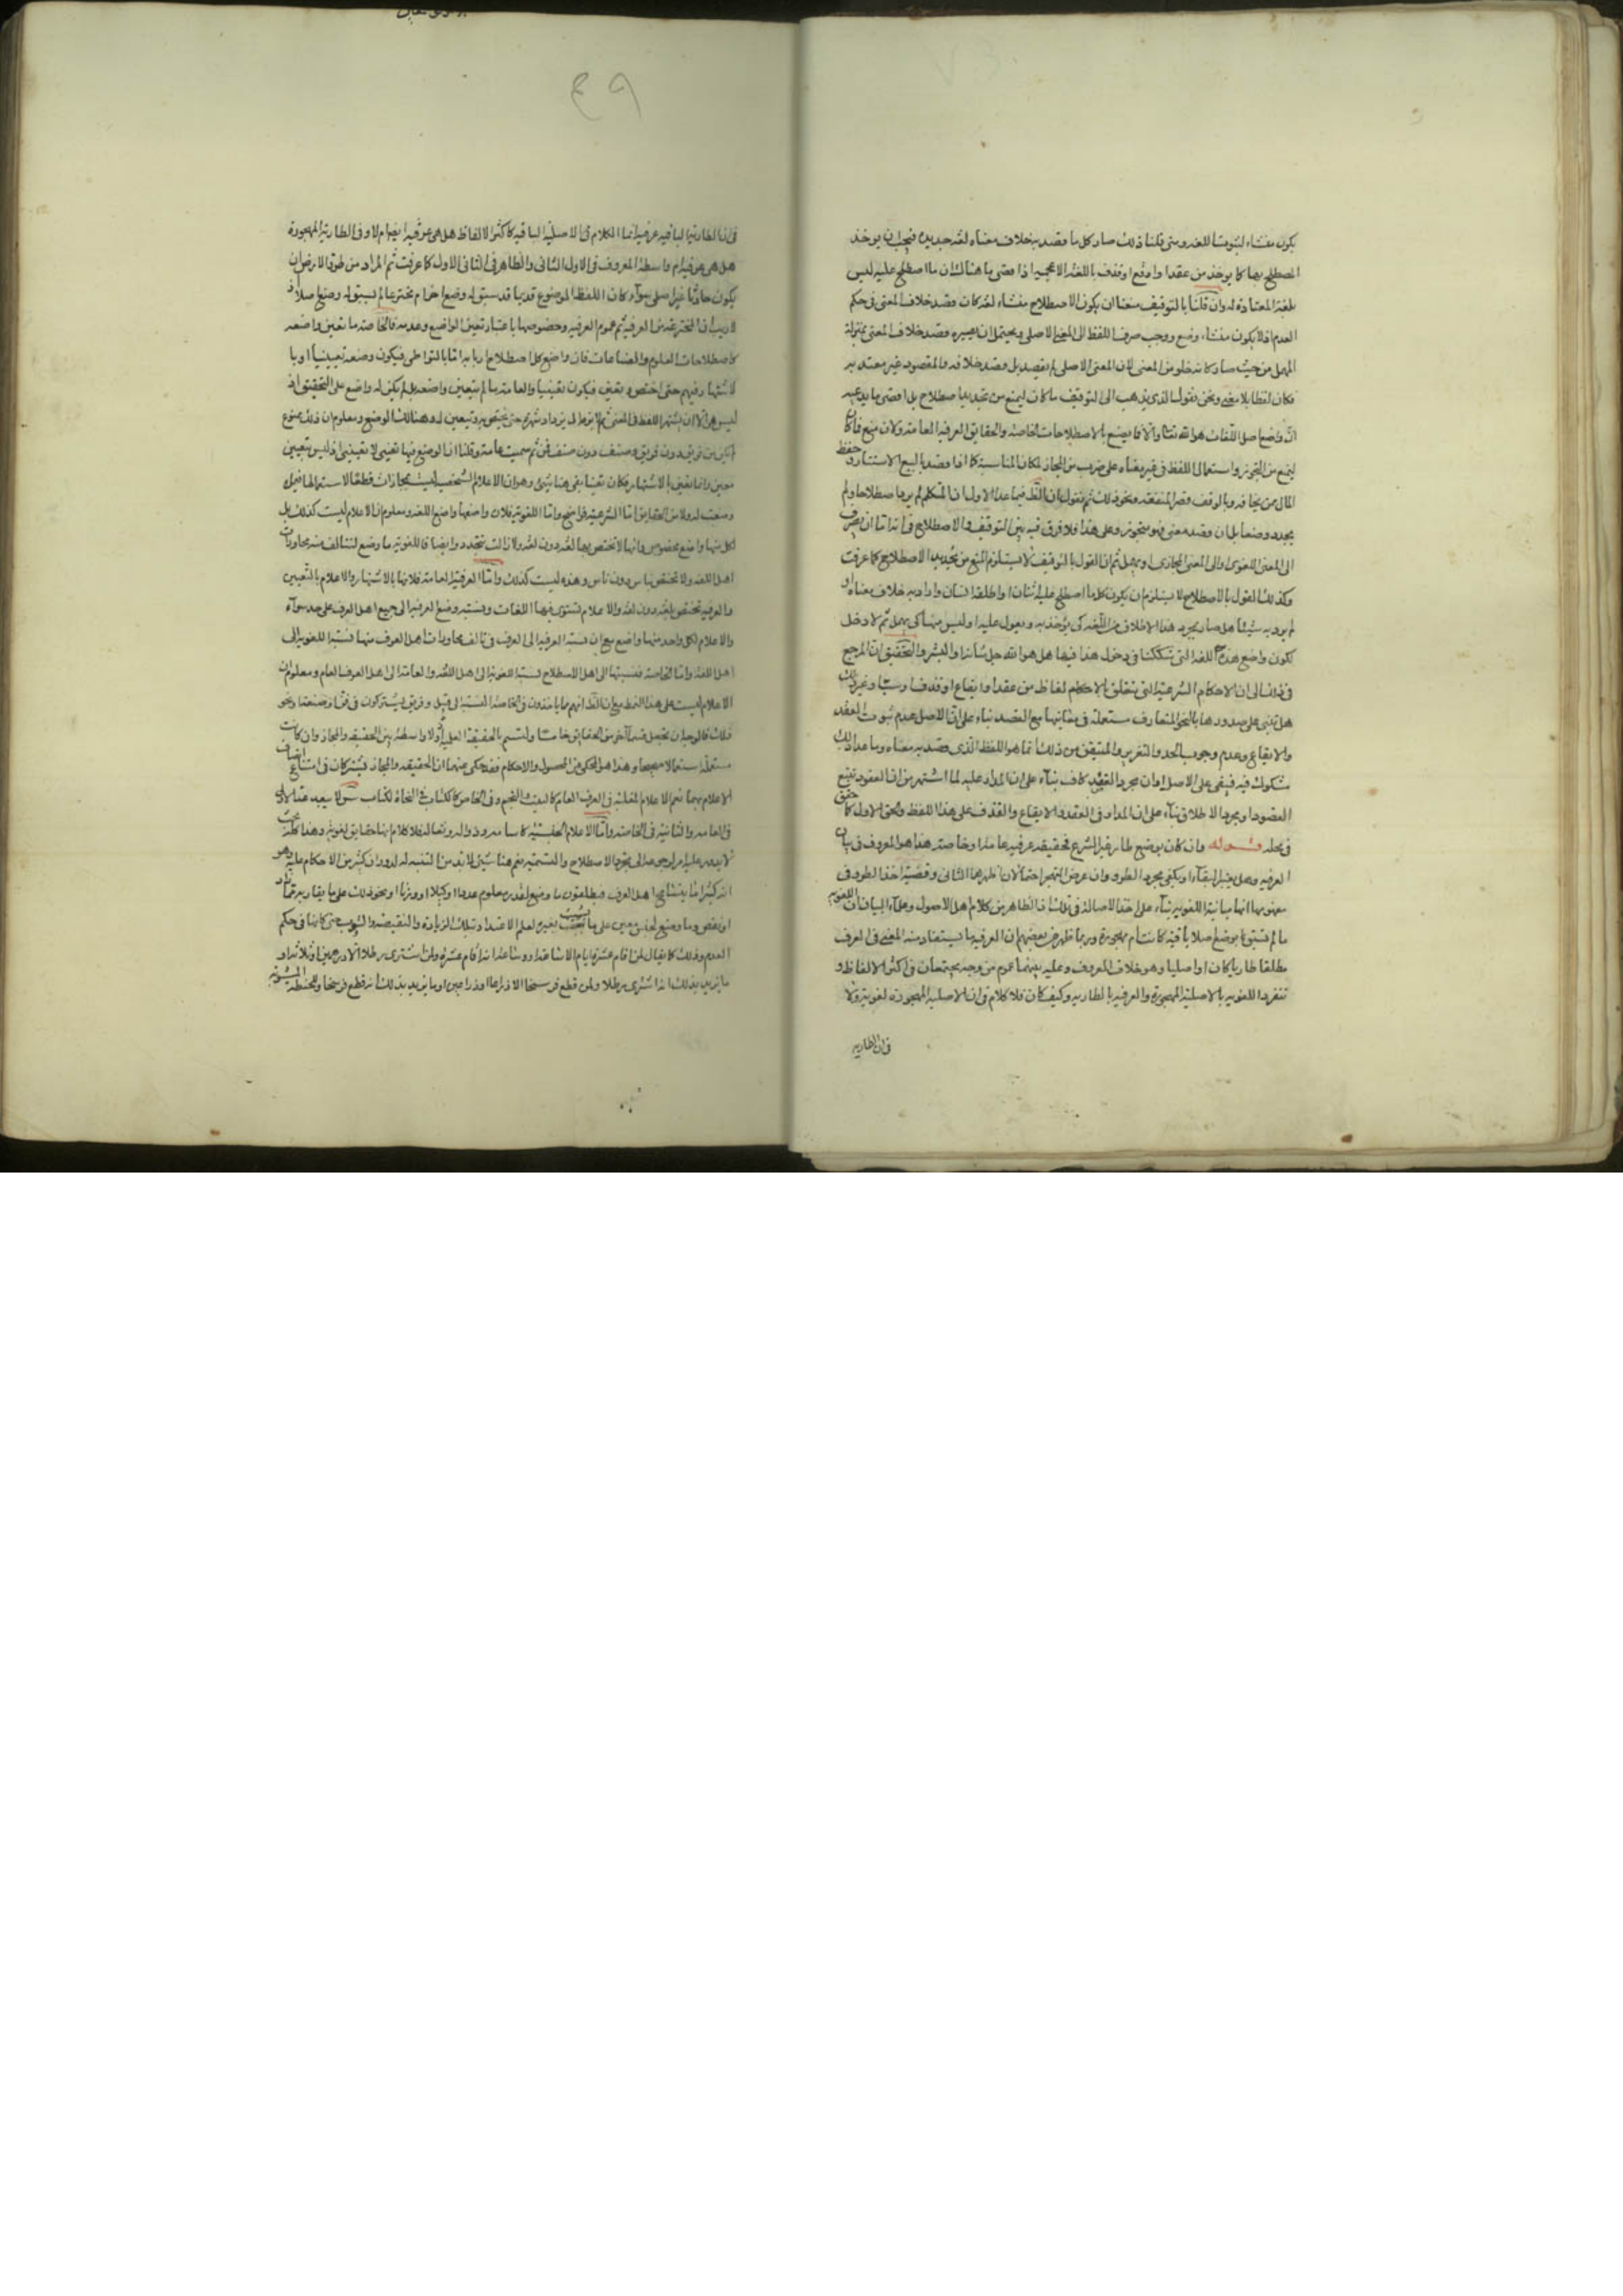 يكون منشاء لثبوت اللغة ومتى قلنا ذلك صار كل ما قصد به خلاف معناه لغة جديدة فيجب ان يوخذ
المصطلح بها كا يوخذ من عقد او اوقع او قذف باللغة الاعجمية اذا اقصى ما هنالك ان ما اصطلح عليه ليس
بلغة المعتادة له وان قلنا بالتوقيف منعنا ان يكون الاصطلاح منشاء لغة كان قصد خلاف المعنى في حكم
العدم اذ لا يكون منشاء وضع ووجب صرف اللفظ الى المعنى الاصلى ويحتمل ان يصيره قصد خلاف المعنى بمنزلة
المهمل من حيث صار كانه خلو من المعنى لان المعنى الاصلى لم يقصد بل قصد خلافه والمقصود غير معتد به
فكان لفظا بلا معنى ونحن نقول الذى يذهب الى التوقيف ما كان ليمنع من تجديد اصطلاح بل اقصى ما يدعيه
ان واضع اصل اللغات هو الله تعالى والا فما يصنع بالاصطلاحات الخاصة والحقايق العرفية العامة ولان منع فما كان
ليمنع من التجوز واستعمال اللفظ في غير معناه على ضرب من المجاز لمكان المناسبة كا اذا قصد بالبيع الاستتار وحفظ
المال ممن يخافه وبالوقف قصر المنفعة ونحو ذلك ثم نقول ان الظ فيما عدا الاول ان المتكلم لم يرد اصطلاحا ولم
يجدد وضعا بل ان قصد معنى فهو متجوز وعلى هذا فلا فرق فيه بين التوقيف والاصطلاح في انه اما ان يصرف
الى المعنى اللغوى او الى المعنى المجازى او يهمل ثم ان القول بالتوقيف لا يستلزم المنع من تجديد الاصطلاح كا عرفت
وكذلك القول بالاصطلاح لا يستلزم ان يكون كل ما اصطلح عليه اثنان او اطلقه انسان واراد به خلاف معناه او
لم يرد به شيئا هل صار بمجرد هذا الاطلاق من اللغة كى يؤخذ به ويعول عليه او ليس منها كى يهمل ثم لا دخل
لكون واضع هذه اللغة التى شككنا في دخول هذا فيها هل هو الله جل شانه او البشر والتحقيق ان المرجع
في ذلك الى ان الاحكام الشرعية التى تتعلق بالاحكام لفاظ من عقد او ايقاع او قذف او سب او غير ذلك
هل تبنى على صدورها بالنحو المتعارف مستعملة في معانيها مع القصد بناء على ان الاصل عدم ثبوت العقد
والايقاع وعدم وجوب الحد والتعزير والمتيقن من ذلك انما هو اللفظ الذى قصد به معناه وما عدا ذلك
مشكوك فيه فيبقى على الاصل او ان مجرد التعقيد كاف بناء على ان المدار عليه لما اشتهر من ان العقود تتبع
القصود او بمجرد الاطلاق بناء على ان المدار في العقد والايقاع والقذف على هذا اللفظ والحق الاول كا حقق
في محله قوله وان كان بوضع طار غير الشرع فحقيقة عرفية عامة او خاصة هذا هو المعروف في بيان
العرفية وهل يعتبر البقاء او يكفى مجرد الطرو وان عرض الهجر احتمالان اظهرهما الثانى وقضية اخذ الطرو في
مفهومها انها مباينة اللغوية بناء على اخذ الاصالة في تلك اذ الظاهر من كلام اهل الاصول وعلماء البيان ان اللغوية
ما لم تسبق بوضع اصلا باقية كانت ام مهجورة وربما ظهر من بعضهم ان العرفية ما يستفاد منه المعنى في العرف
مطلقا طاريا كان او اصليا وهو خلاف المعروف وعليه بينهما عموم من وجه يجتمعان في اكثر الالفاظ و
تنفرد اللغوية بالاصلية المهجورة والعرفية بالطارية وكيف كان فلا كلام في ان الاصلية المهجورة لغوية ولا
في ان الطارية
٤٩
في ان الطارية الباقية عرفية انما الكلام في الاصلية الباقية كاكثر الالفاظ هل هى عرفية ايضا ام لا وفى الطارية المهجورة
هل هى عرفية ام واسطة المعروف في الاول الثانى والظاهر في الثانى الاول كا عرفت ثم المراد من طرو الارض ان
يكون حادثا غير اصلى سواء كان اللفظ الموضوع قديما قد سبق له وضع اخر ام مخترعا لم يسبق له وضع اصلا اذ
لا ريب ان المخترعة من العرفية ثم عموم العرفية وخصوصها باعتبار تعين الواضع وعدمه فالخاصة ما تعين واضعه
كاصطلاحات العلوم والصناعات فان واضع كل اصطلاح اربابه اما بالتواطى فيكون وضعه تعيينيا او با
لاشتهار فيهم حتى اختص وتعين فيكون تعينيا والعامة ما لم يتعين واضعه بل لم يكن له واضع على التحقيق اذ
ليس هو الا ان يشتهر اللفظ في المعنى ثم لا يزال يزداد شهرة حتى يختص به ويتعين له وهنالك الوضع ومعلوم ان ذلك ممنوع
لم يكن من فريق دون فريق وصنف دون صنف فمن ثم سميت عامة وقلنا ان الوضع فيها تعينى لا تعيينى اذ ليس بتعيين
معين وانما تعين بالاشتهار فكان تعينا بقى هنا شيئ وهو ان الاعلام الشخصية ليست بمجازات قطعا لاستعمالها فيما
وضعت له ولا من الحقايق اما الشرعية فواضح واما اللغوية فلان واضعها واضع اللغة ومعلوم ان الاعلام ليست كذلك بل
لكل منها واضع مخصوص وانها لا تختص بها لغة دون لغة ولا زالت تتجدد وايضا فاللغوية ما وضع لتتالف منه محاورات
اهل اللغة ولا تختص بناس دون ناس وهذه ليست كذلك واما العرفية العامة فلانها بالاشتهار والاعلام بالتعيين
والعرفية تختص بلغة دون لغة والاعلام تستوى فيها اللغات ونسبة وضع العرفية الى جميع اهل العرف على حد سواء
والاعلام لكل واحد منها واضع مع ان نسبة العرفية الى العرف في تالف محاورات اهل العرف منها نسبة اللغوية الى
اهل اللغة واما الخاصة فنسبتها الى اهل الاصطلاح نسبة اللغوية الى اهل اللغة والعامة الى اهل العرف العام ومعلوم ان
الاعلام ليست على هذا النمط مع ان الظ انهم ما ياخذون في الخاصة النسبة الى قبيل وفريق يشتركون في فن او صنعة او نحو
ذلك فالوجه ان تجعل قسما اخر من الحقايق خامسا ولتسم بالحقيقة العلمية ولا واسطة بين الحقيقة والمجاز وان كانت
مستعملة استعمالا صحيحا وهذا هو المحكى من المحصول والاحكام فقد حكى عنهما ان الحقيقة والمجاز يشتركان في امتناع اتصاف
الاعلام بهما نعم الاعلام الغلبية في العرف العام كالبيت والنجم وفى الخاص كالكتاب في النحاة لكتاب س لا يبعد عد الاولى
في العامة والثانية في الخاصة واما الاعلام الجنسية كاسامة وذوالة وثعالة فلا كلام انها حقايق لغوية وهذا كله
لا يدور عليه امر لوجوعه الى مجرد الاصطلاح والتسمية نعم هنا شيئ لا بد من التنبه له لدوران كثير من الاحكام عليه وهو
انه كثيرا ما يتسامح اهل العرف فيطلقون ما وضع لقدر معلوم عددا او كيلا او وزنا او نحو ذلك على ما يقاربه مما زاد
او نقص وما وضع لجنس معين على ما يغيره لعدم الاعتداد بتلك الزيادة والنقيصة والشوب حتى كانها في حكم
العدم وذلك كا يقال لمن اقام عشرة ايام الا ساعة او وساعة انه اقام عشرة ولمن اشترى رطلا الا درهمين او ثلاثة او
ما يزيد بذلك انه اشترى رطلا ولمن قطع فرسخا الا ذراعا او ذراعين او ما يزيد بذلك انه قطع فرسخا وللحنطة المشوبة